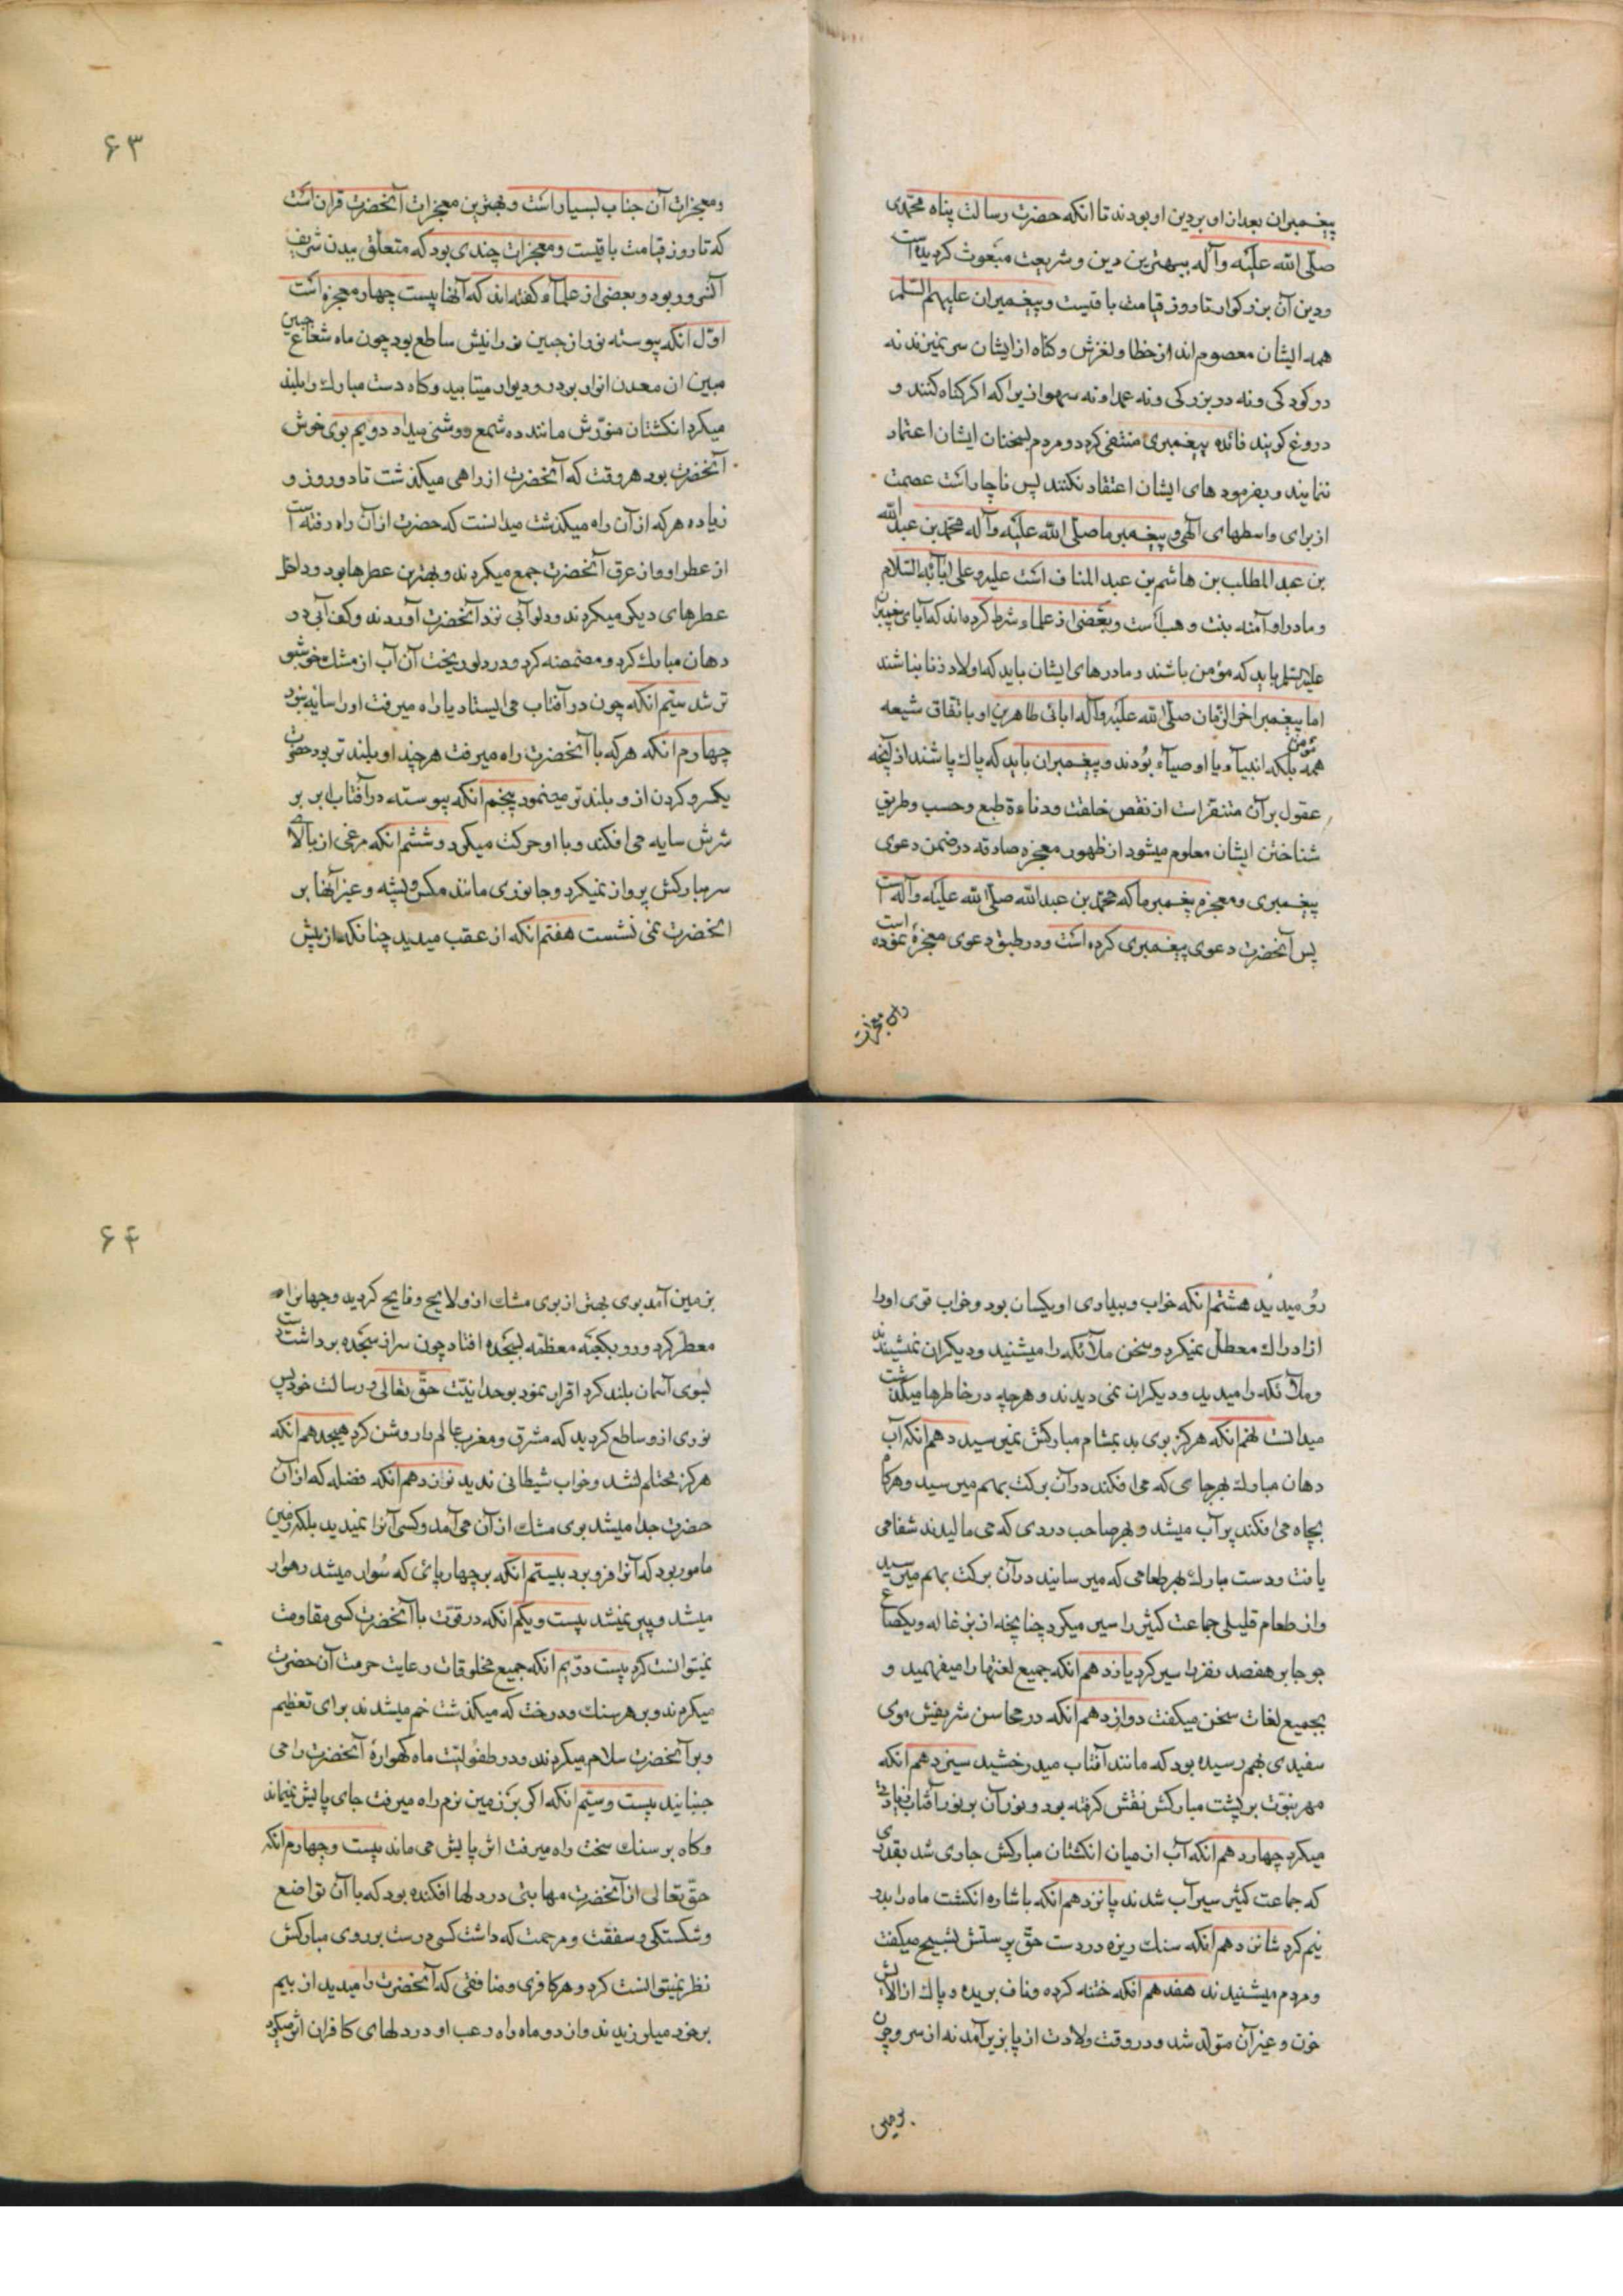 پیغمبران بعد از او بر دین او بودند تا انکه حضرت رسالت پناه محمدی
صلّی الله علیه و آله ببهترین دین و شریعت مبعوث کردیده است
و دین آن بزرکوار تا روز قیامت باقیست و پیغمبران علیهم السّلم
همه ایشان معصوم اند از خطا و لغزش و کناه از ایشان سر نمیزند نه
در کودکی و نه در بزرکی و نه عمدا و نه سهوا زیرا که اکر کناه کنند و
دروغ کویند فائده پیغمبری منتفی کردد و مردم بسخنان ایشان اعتماد
ننمایند و بفرمودهای ایشان اعتقاد نکنند پس ناچار است عصمت
از برای واسطهای آلهی و پیغمبر ما صلّی الله علیه و آله محمّد بن عبد الله
بن عبد المطلب بن هاشم بن عبد المناف است علیه و علی ابائه السّلام
و مادر او آمنه بنت وهب است و بعضی از علماء شرط کرده اند که آبای پیغمبران
علیهم السّلم باید که مؤمن باشند و مادرهای ایشان باید که اولاد زنا نباشند
اما پیغمبر اخر الزّمان صلّی الله علیه و آله ابائی طاهرین او باتفاق شیعه
همه مؤمن بلکه انبیآء یا اوصیآء بُودند و پیغمبران باید که پاك باشند از آنچه
عقول بر آن متنفر است از نقص خلقت و دناءة طبع و حسب و طریق
شناختن ایشان معلوم میشود از ظهور معجزه صادقه در ضمن دعوی
پیغمبری و معجزه پیغمبر ما که محمّد بن عبد الله صلّی الله علیه و آله است
پس آنحضرت دعوی پیغمبری کرده است و در طبق دعوی معجزهٔ نموده است
و معجزات
۶۳
و معجزات آن جناب بسیار است و بهترین معجزات آنحضرت قران است
که تا روز قیامت باقیست و معجزات چندی بود که متعلّق ببدن شریف
آنسرور بود و بعضی از علمآء کفته اند که آنها بیست چهار معجزه است
اوّل انکه پیوسته نور از جبین نورانیش ساطع بود چون ماه شعاع جبین
مبین ان معدن انوار بود در و دیوار میتابید و کاه دست مبارك را بلند
میکرد انکشتان منوّرش مانند ده شمع روشنی میداد دویم بوی خوش
آنحضرت بود هر وقت که آنحضرت از راهی میکذشت تا دو روز و
زیاده هر که از آن راه میکذشت میدانست که حضرت از آن راه رفته است
از عطر او و از عرق آنحضرت جمع میکردند و بهترین عطرها بود و داخل
عطرهای دیکر میکردند و دلو آبی نزد آنحضرت آوردند و کف آبی در
دهان مبارك کرد و مضمضه کرد و در دلو ریخت آن آب از مشك خوشبو
تر شد سیّم انکه چون در آفتاب می ایستاد یا راه میرفت او را سایه نبود
چهارم انکه هر که با آنحضرت راه میرفت هر چند او بلند تر بود حضرت
یکسر و کردن از و بلند تر مینمود پنجم انکه پیوسته در آفتاب ابر بر
سرش سایه می افکند و با او حرکت میکرد و ششم انکه مرغی از بالای
سر مبارکش پرواز نمیکرد و جانوری مانند مکس و پشه و غیر آنها بر
انحضرت نمی نشست هفتم انکه از عقب میدید چنانکه از پیش
رُو میدید هشتم انکه خواب و بیداری او یکسان بود و خواب قوی او را
از ادراك معطّل نمیکرد و سخن ملآئکه را میشنید و دیکران نمیشنیدند
و ملآئکه را میدید و دیکران نمی دیدند و هر چه در خاطرها میکذشت
میدانست نهم انکه هرکز بوی بد بمشام مبارکش نمیرسید دهم انکه آب
دهان مبارك بهر جای که می افکند در آن برکت بهم میرسید و هرکاه
بچاه می افکند پر آب میشد و بهر صاحب دردی که می مالیدند شفا می
یافت و دست مبارك بهر طعامی که میرسانید در آن برکت بهم میرسید
و از طعام قلیلی جماعت کثیر را سیر میکرد چنانچه از بزغاله و یکصاع
جو جابر هفصد نفر را سیر کرد یازدهم انکه جمیع لغتها را میفهمید و
بجمیع لغات سخن میکفت دوازدهم انکه در محاسن شریفش موی
سفیدی بهم رسیده بود که مانند آفتاب میدرخشید سیزدهم انکه
مهر نبوّت بر پشت مبارکش نقش کرفته بود و نور آن بر نور آفتاب زیادتی
میکرد چهاردهم انکه آب از میان انکشتان مبارکش جاری شد بقدری
که جماعت کثیر سیر آب شدند پانزدهم انکه باشاره انکشت ماه را بدو
نیم کرد شانزدهم انکه سنك ریزه در دست حقّ پرستش تسبیح میکفت
و مردم میشنیدند هفدهم انکه ختنه کرده و ناف بریده و پاك از الآیش
خون و غیر آن متولّد شد و در وقت ولادت از پا بزیر آمد نه از سر و چون
بزمین
۶۴
بزمین آمد بوی بهتر از بوی مشك از و لایح و فایح کردید و جهانرا
معطّر کرد و رو بکعبّه معظّمه بسَجده افتاد چون سر از سَجده برداشت دست
بسوی آسمان بلند کرد اقرار نمود بوحدانیّت حقّ تعالی و رسالت خود پس
نوری از و ساطع کردید که مشرق و مغرب عالم را روشن کرد هیجدهم انکه
هرکز محتلم نشد و خواب شیطانی ندید نوزدهم انکه فضله که از آن
حضرت جدا میشد بوی مشك از آن می آمد و کسی آنرا نمیدید بلکه زمین
مامور بود که آنرا فرو برد بیستم انکه بر چهارپائی که سُوار میشد رهوار
میشد و پیر نمیشد بیست و یکم انکه در قوّت با آنحضرت کسی مقاومت
نمیتوانست کرد بیست دوّیم انکه جمیع مخلوقات رعایت حرمت آن حضرت
میکردند و بر هر سنك و درخت که میکذشت خم میشدند برای تعظیم
و بر آنحضرت سلام میکردند و در طفولیّت ماه کهوارهٔ آنحضرت را می
جنبانید بیست و سیّم انکه اکر بر زمین نرم راه میرفت جای پایش نمیماند
و کاه بر سنك سخت راه میرفت اثر پایش می ماند بیست و چهارم انکه
حقّ تعالی از آنحضرت مهابتی در دلها افکنده بود که با آن تواضع
و شکستکی و سفقت و مرحمت که داشت کسی درست بر روی مبارکش
نظر نمیتوانست کرد و هر کافری و منافقی که آنحضرت را میدید از بیم
بر خود میلرزیدند و از دو ماه راه رعب او در دلهای کافران اثر میکرد